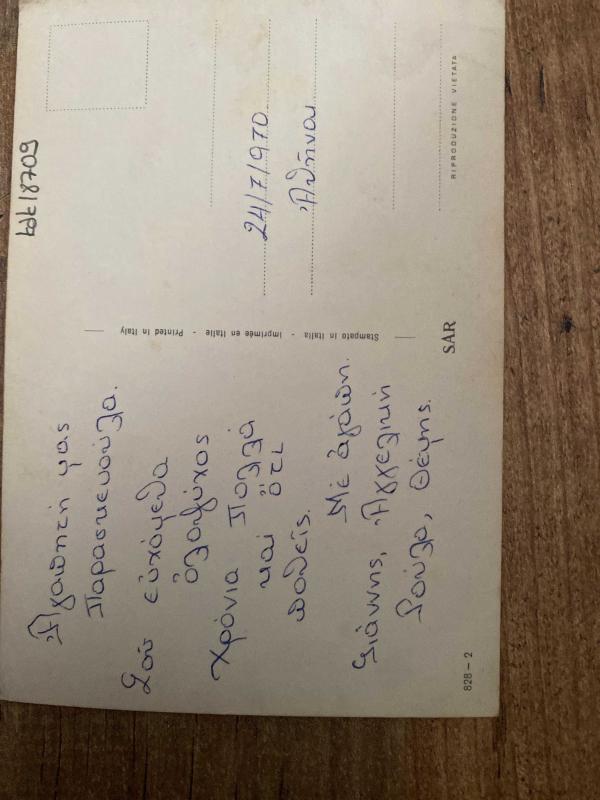 Ἀγαπητή μας
Παρασκευούλα.
Σοῦ εὐχόμεθα
ὁλοψύχος
Χρόνια Πολλά
καί ὅτι
ποθεῖς.
Μέ ἀγάπη.
Γιάννης, Ἀγγελική
Ρούλα, Θέμης.
828 – 2
Stampato in Italia - Imprimée en Italie - Printed in Italy
SAR
24/7/1970
Ἀθῆναι
RIPRODUZIONE VIETATA